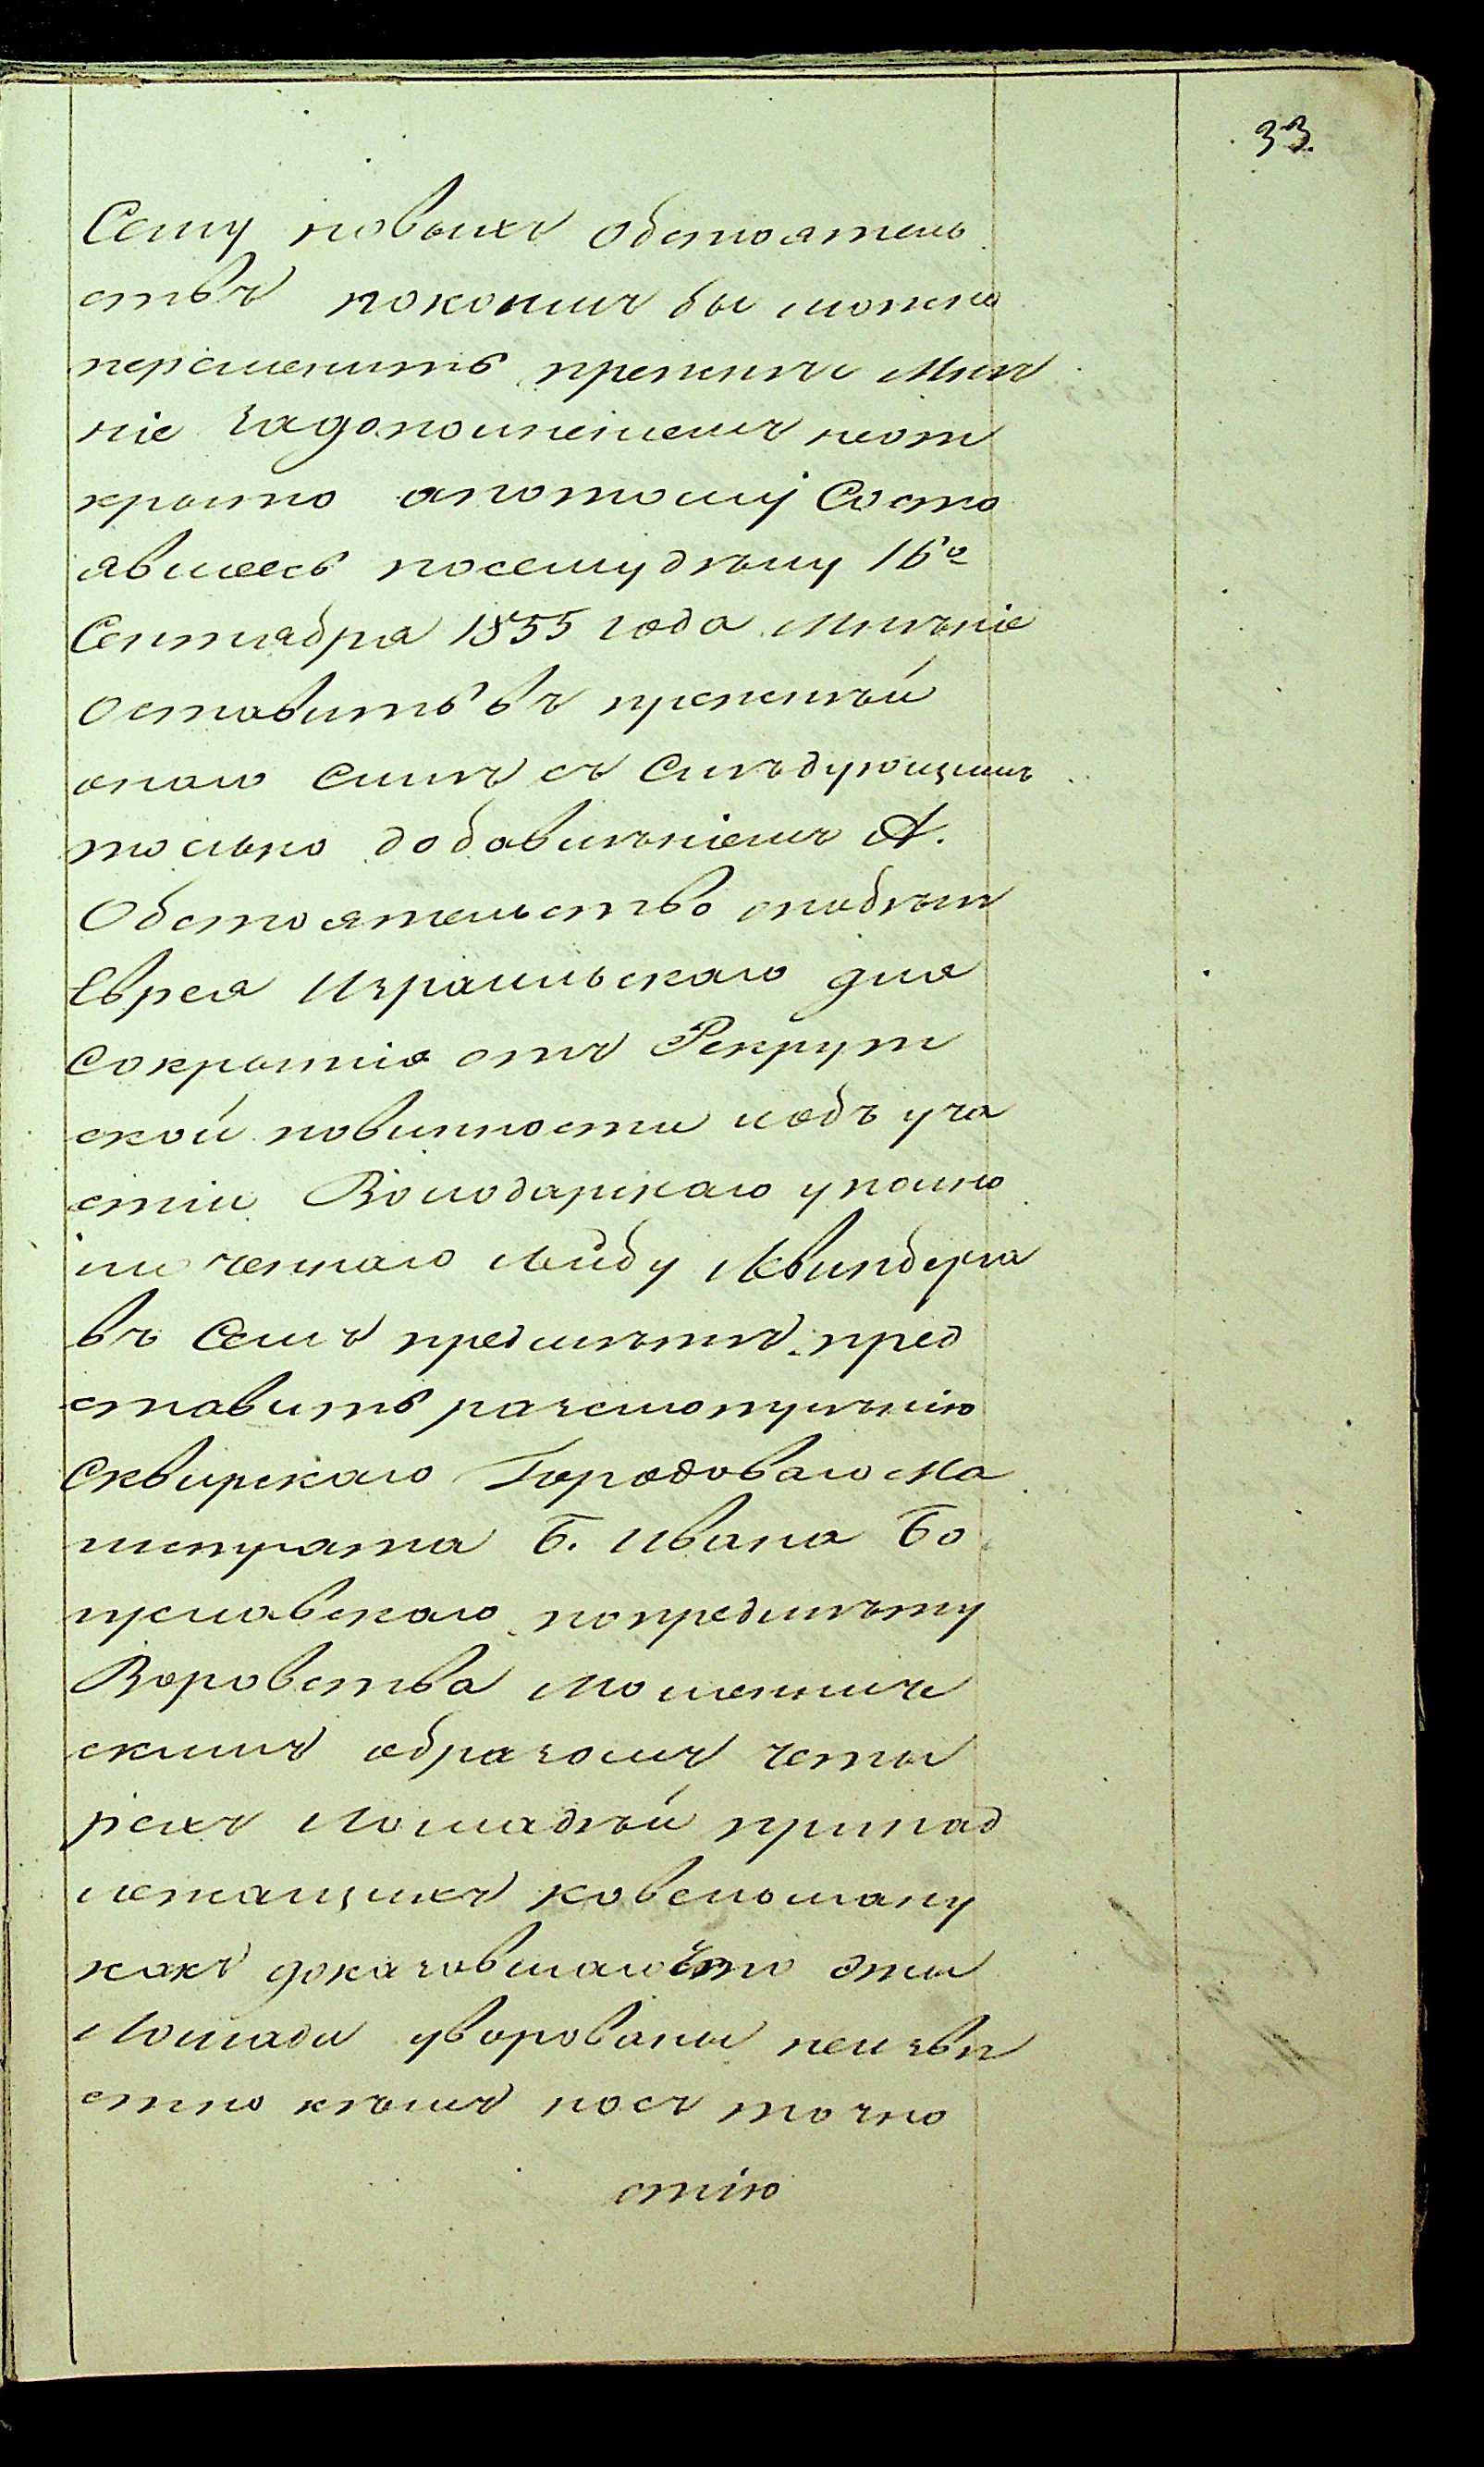 33.
Сему новыхъ обстоятель
ствъ покоимъ бы можно
переменить прежнѣе Мнѣ
ніе задополненіемъ неот
крыто апотому Состо
явшеесь посемудѣлу 16го
Сентября 1855 года Мнѣніе
Оставить въ прежнѣй
оного Силѣ съ Слѣдующимъ
только добавлѣніемъ А.
Обстоятельство отдѣлѣ
Еврея Израильскаго для
Сокрытія отъ Рекрут
ской повинности подъ уча
стіи Володарскаго уполно
моченнаго Лейбу Квинберга
въ Семъ предмѣтѣ пред
ставить разсмотрѣнію
Сквирскаго Городоваго Ма
гистрата Б. Ивана Бо
гуславскаго попредмѣту
Воровства Мошенниче
скимъ образомъ четы
рехъ Лошадѣй принад
лежащихъ Ковельману
какъ доказавшаго что эты
Лошади уворованы неизвѣ
стно кѣмъ носъ точно
стію